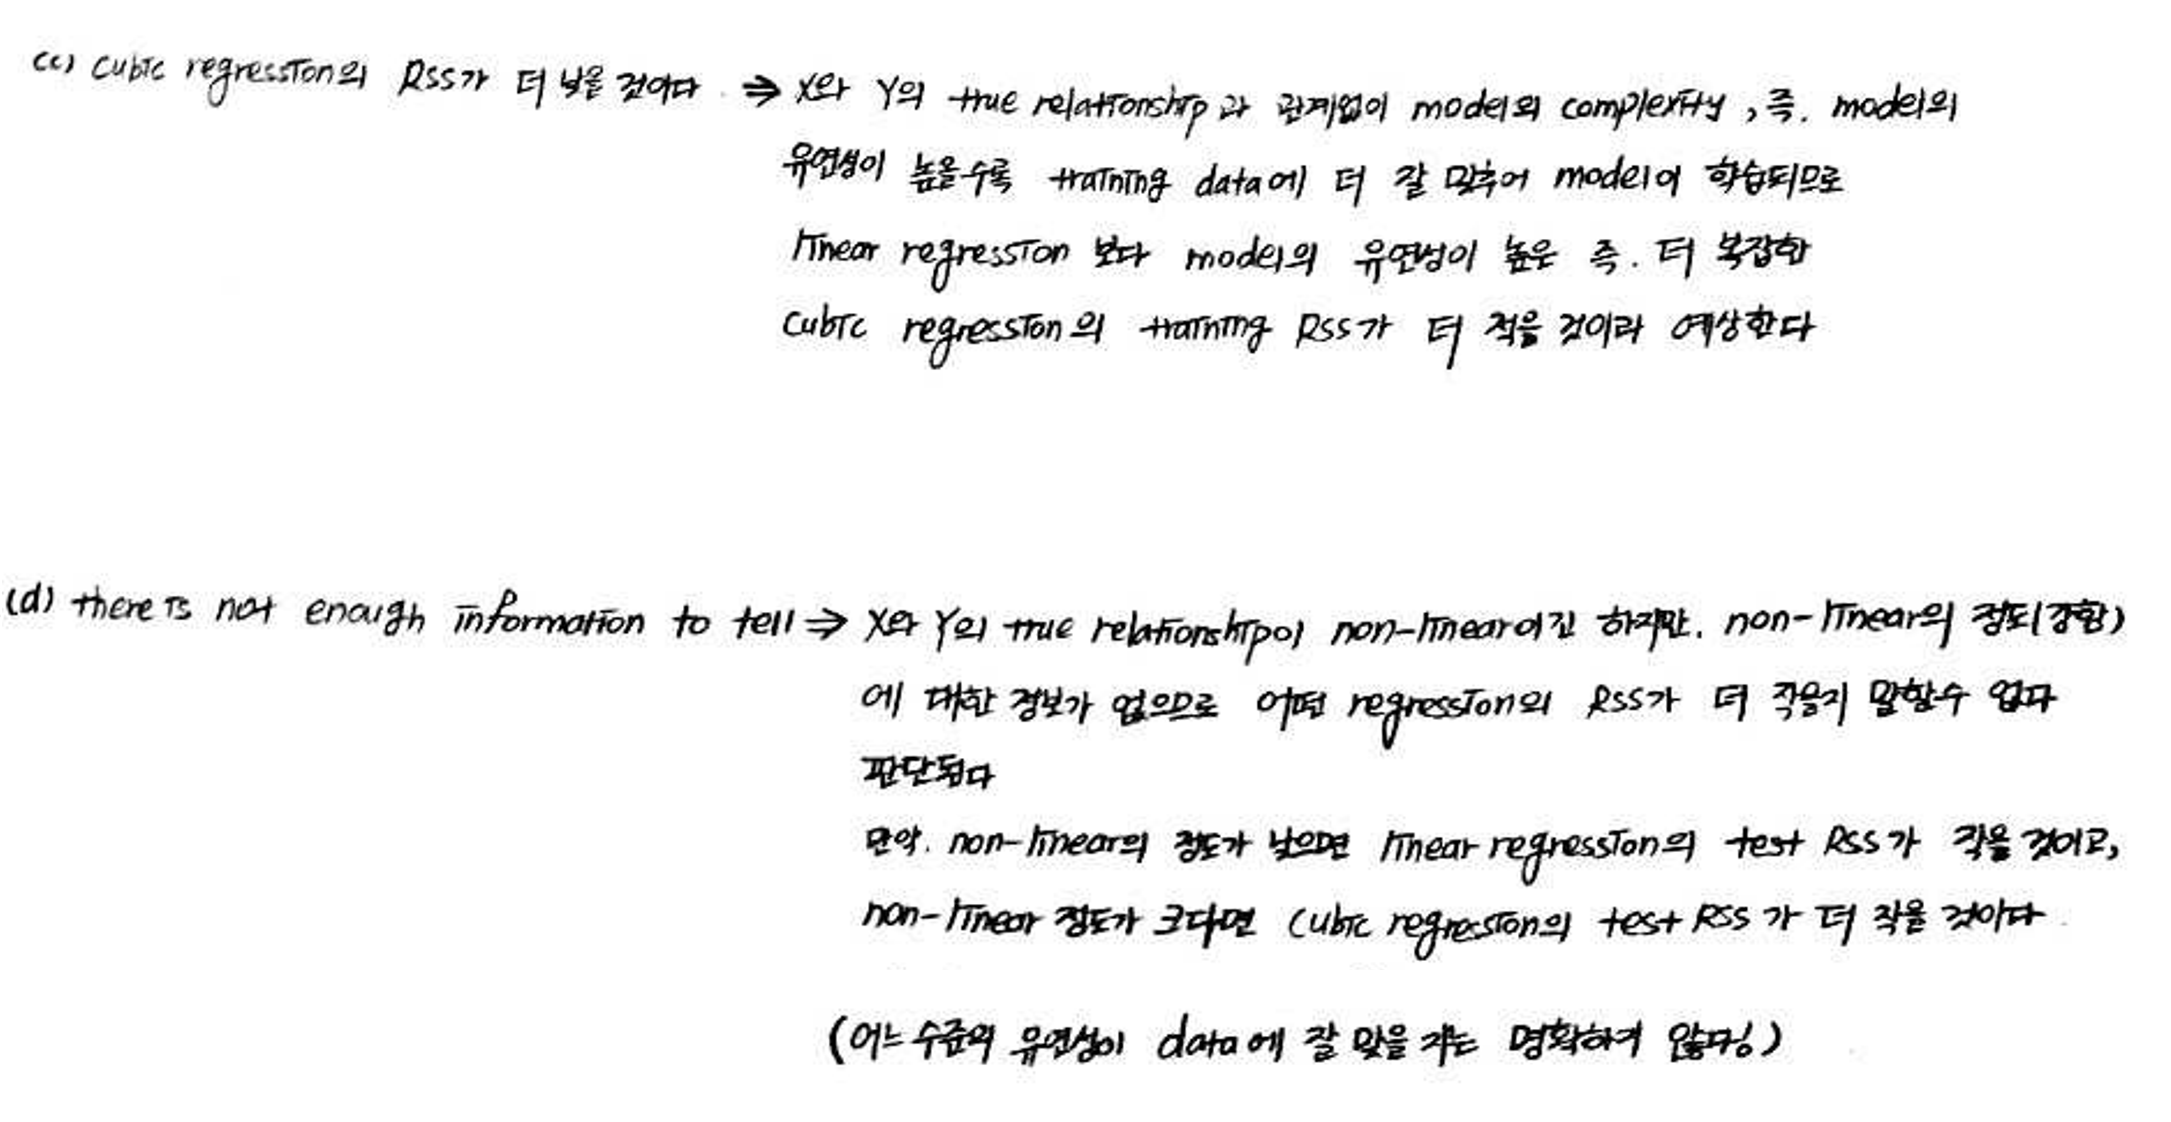 (c) cubic regression의 RSS가 더 낮을 것이다. ⇒ X와 Y의 true relationship과 관계없이 model의 complexity, 즉. model의
유연성이 높을수록 training data에 더 잘 맞추어 model이 학습되므로
linear regression 보다 model의 유연성이 높은 즉. 더 복잡한
cubic regression의 training RSS가 더 적을 것이라 예상한다
(d) there is not enough information to tell ⇒ X와 Y의 true relationship이 non-linear이긴 하지만. non-linear의 정도(강함)
에 대한 정보가 없으므로 어떤 regression의 RSS가 더 작을지 말할수 없다
판단된다
만약. non-linear의 정도가 낮으면 linear regression의 test RSS가 작을 것이고,
non-linear 정도가 크다면 cubic regression의 test RSS가 더 작을 것이다.
(어느 수준의 유연성이 data에 잘 맞을 지는 명확하지 않다)